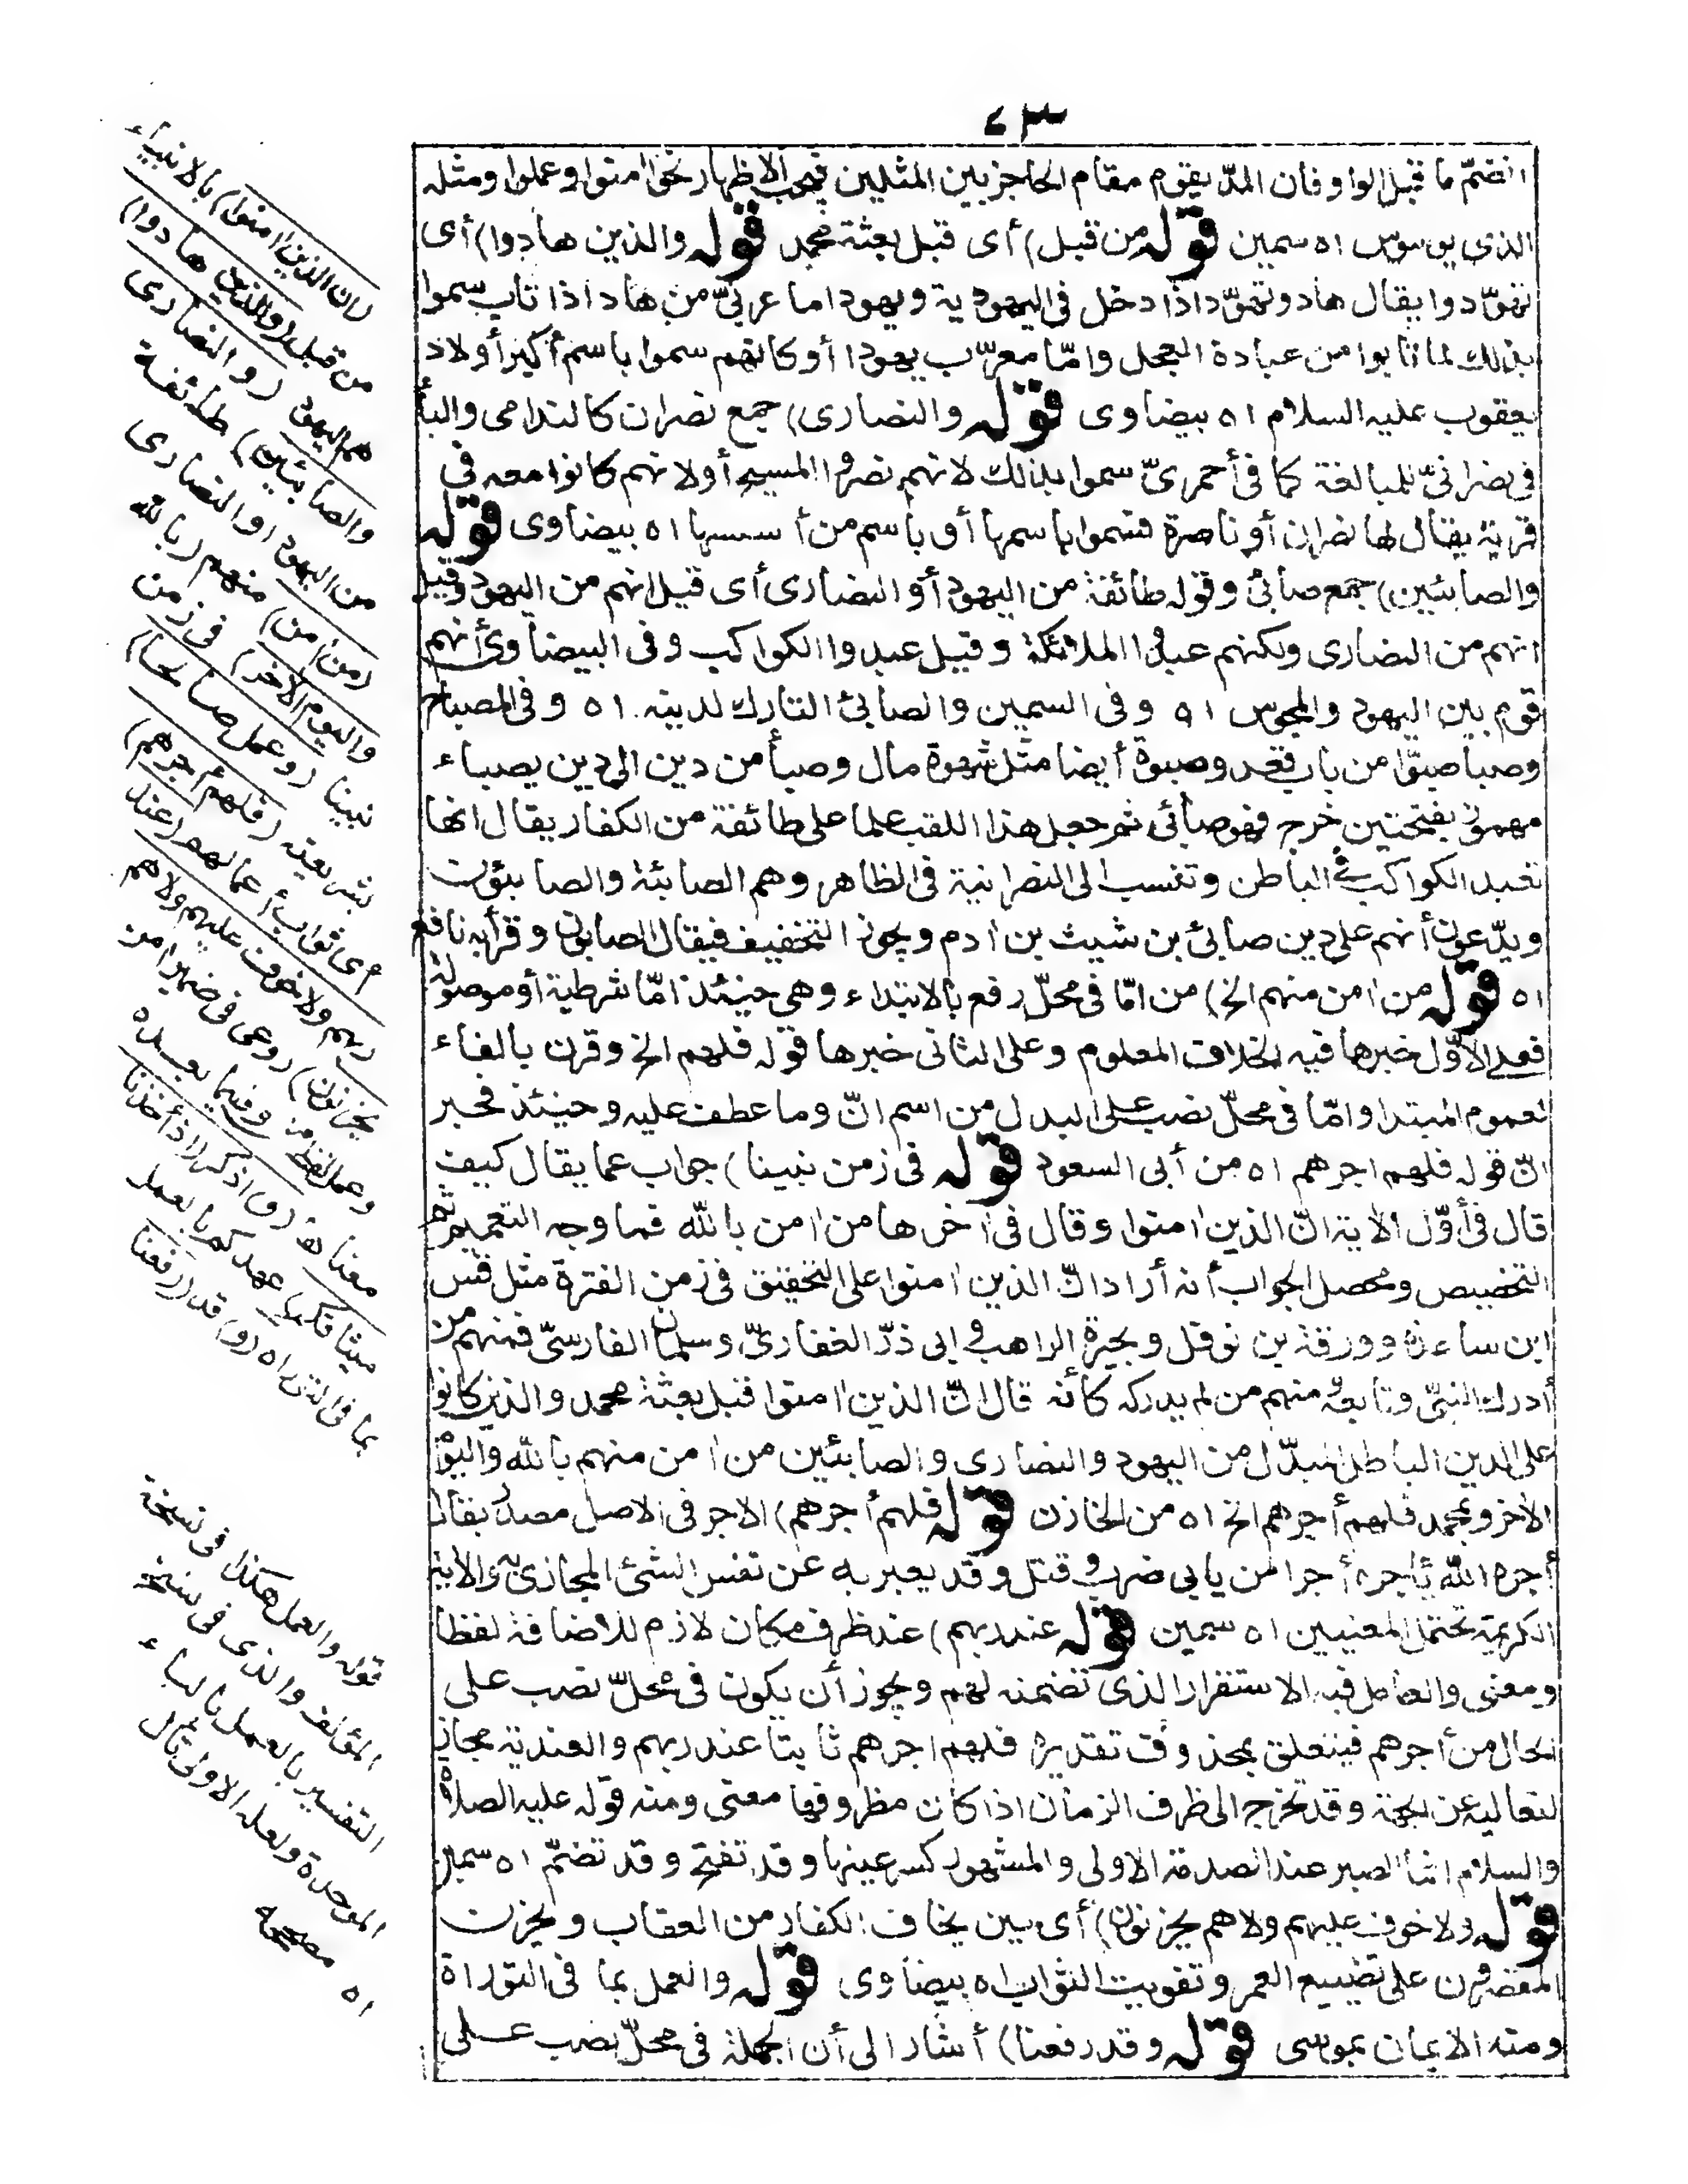 ٧٣
انضمّ ما قبل الواو فان المدّ يقوم مقام الحاجز بين المثلين فيجب الاظهار نحو اٰمنوا وعملوا ومثله
الذى يوسوس اه سمين قوله من قبل) أى قبل بعثة محمد قوله والذين هادوا) أى
تهوّدوا يقال هاد وتهوّد اذا دخل فى اليهودية ويهود اما عربىّ من هاد اذا تاب سموا
بذلك لما تابوا من عبادة العجل وامّا معرّب يهوذا أو كانهم سموا باسم أكبر أولاد
يعقوب عليه السلام اه بيضاوى قوله والنصارى) جمع نصران كالندامى والياء
فى نصرانىّ للمبالغة كما فى أحمرىّ سموا بذلك لانهم نصروا المسيح أو لانهم كانوا معه فى
قرية يقال لها نصران أو ناصرة فسموا باسمها أو باسم من أسسها اه بيضاوى قوله
والصابئين) جمع صابئ وقوله طائفة من اليهود أو النصارى أى قيل انهم من اليهود وقيل
انهم من النصارى ولكنهم عبدوا الملائكة وقيل عبدوا الكواكب وفى البيضاوى أنهم
قوم بين اليهود والمجوس اه وفى السمين والصابئ التارك لدينه اه وفى المصباح
وصبا صبوّا من باب قعد وصبوة أيضا مثل شهوة مال وصبأ من دين الى دين يصباء
مهموز بفتحتين خرج فهو صابئ ثم جعل هذا اللقب علما على طائفة من الكفار يقال انها
تعبد الكواكب فى الباطن وتنسب الى النصرانية فى الظاهر وهم الصابئة والصابئون
ويدّعون أنهم على دين صابئ بن شيث بن اٰدم ويجوز التخفيف فيقال الصابون وقرأ به نافع
اه قوله من اٰمن منهم الخ) من امّا فى محلّ رفع بالابتداء وهى حينئذ امّا شرطية أو موصولة
فعلى الاوّل خبرها فيه الخلاف المعلوم وعلى الثانى خبرها قوله فلهم الخ وقرن بالفاء
لعموم المبتدا وامّا فى محلّ نصب على البدل من اسم انّ وما عطف عليه وحينئذ فخبر
انّ قوله فلهم اجرهم اه من أبى السعود قوله فى زمن نبينا) جواب عما يقال كيف
قال فى أوّل الاٰية انّ الذين اٰمنوا وقال فى اٰخرها من اٰمن بالله فما وجه التعميم ثم
التخصيص ومحصل الجواب أنه أراد انّ الذين اٰمنوا على التحقيق فى زمن الفترة مثل قس
ابن ساعدة وورقة بن نوفل وبحيرة الراهب وابى ذرّ الغفارىّ وسلمان الفارسىّ فمنهم من
أدرك النبىّ وتابعه ومنهم من لم يدركه كأنه قال انّ الذين اٰمنوا قبل بعثة محمد والذين كانوا
على الدين الباطل المبدّل من اليهود والنصارى والصابئين من اٰمن منهم بالله واليوم
الاٰخر وبمحمد فلهم أجرهم الخ اه من الخازن قوله فلهم أجرهم) الاجر فى الاصل مصدر يقال
أجره الله يأجره أجرا من يابى ضرب وقتل وقد يعبر به عن نفس الشئ المجازى به والاٰية
الكريمة تحتمل المعنيين اه سمين قوله عند ربهم) عند ظرف مكان لازم للاضافة لفظا
ومعنى والعامل فيه الاستقرار الذى تضمنه لهم ويجوز أن يكون فى محلّ نصب على
الحال من أجرهم فيتعلق بمحذوف تقديره فلهم اجرهم ثابتا عند ربهم والعندية مجاز
لتعاليه عن الجهة وقد تخرج الى ظرف الزمان اذا كان مظروفها معنى ومنه قوله عليه الصلاة
والسلام انما الصبر عند الصدمة الاولى والمشهور كسر عينها وقد تفتح وقد تضمّ اه سمين
قوله ولا خوف عليهم ولا هم يحزنون) أى حين يخاف الكفار من العقاب ويحزن
المقصرون على تضييع العمر وتفويت الثواب اه بيضاوى قوله والعمل بما فى التوراة
ومنه الايمان بموسى قوله وقد رفعنا) أشار الى أن الجملة فى محلّ نصب على
(ان الذين اٰمنوا) بالانبياء
من قبل (والذين هادوا)
هم اليهود (والنصارى
والصابئين) طائفة
من اليهود او النصارى
(من اٰمن) منهم (بالله
واليوم الاٰخر) فى زمن
نبينا (وعمل صالحا)
بشريعته (فلهم أجرهم)
أى ثواب أعمالهم (عند
ربهم ولا خوف عليهم ولا هم
يحزنون) روعى فى ضمير اٰمن
وعمل لفظ من وفيما بعده
معناها (و) اذكر (اذ أخذنا
ميثاقكم) عهدكم بالعمل
بما فى التوراه (و) قد (رفعنا
قوله والعمل هكذا فى نسخة
المؤلف والذى فى نسخ
التفسير بالعمل بالباء
الموحدة ولعله الاولى تأمل
اه مصححه